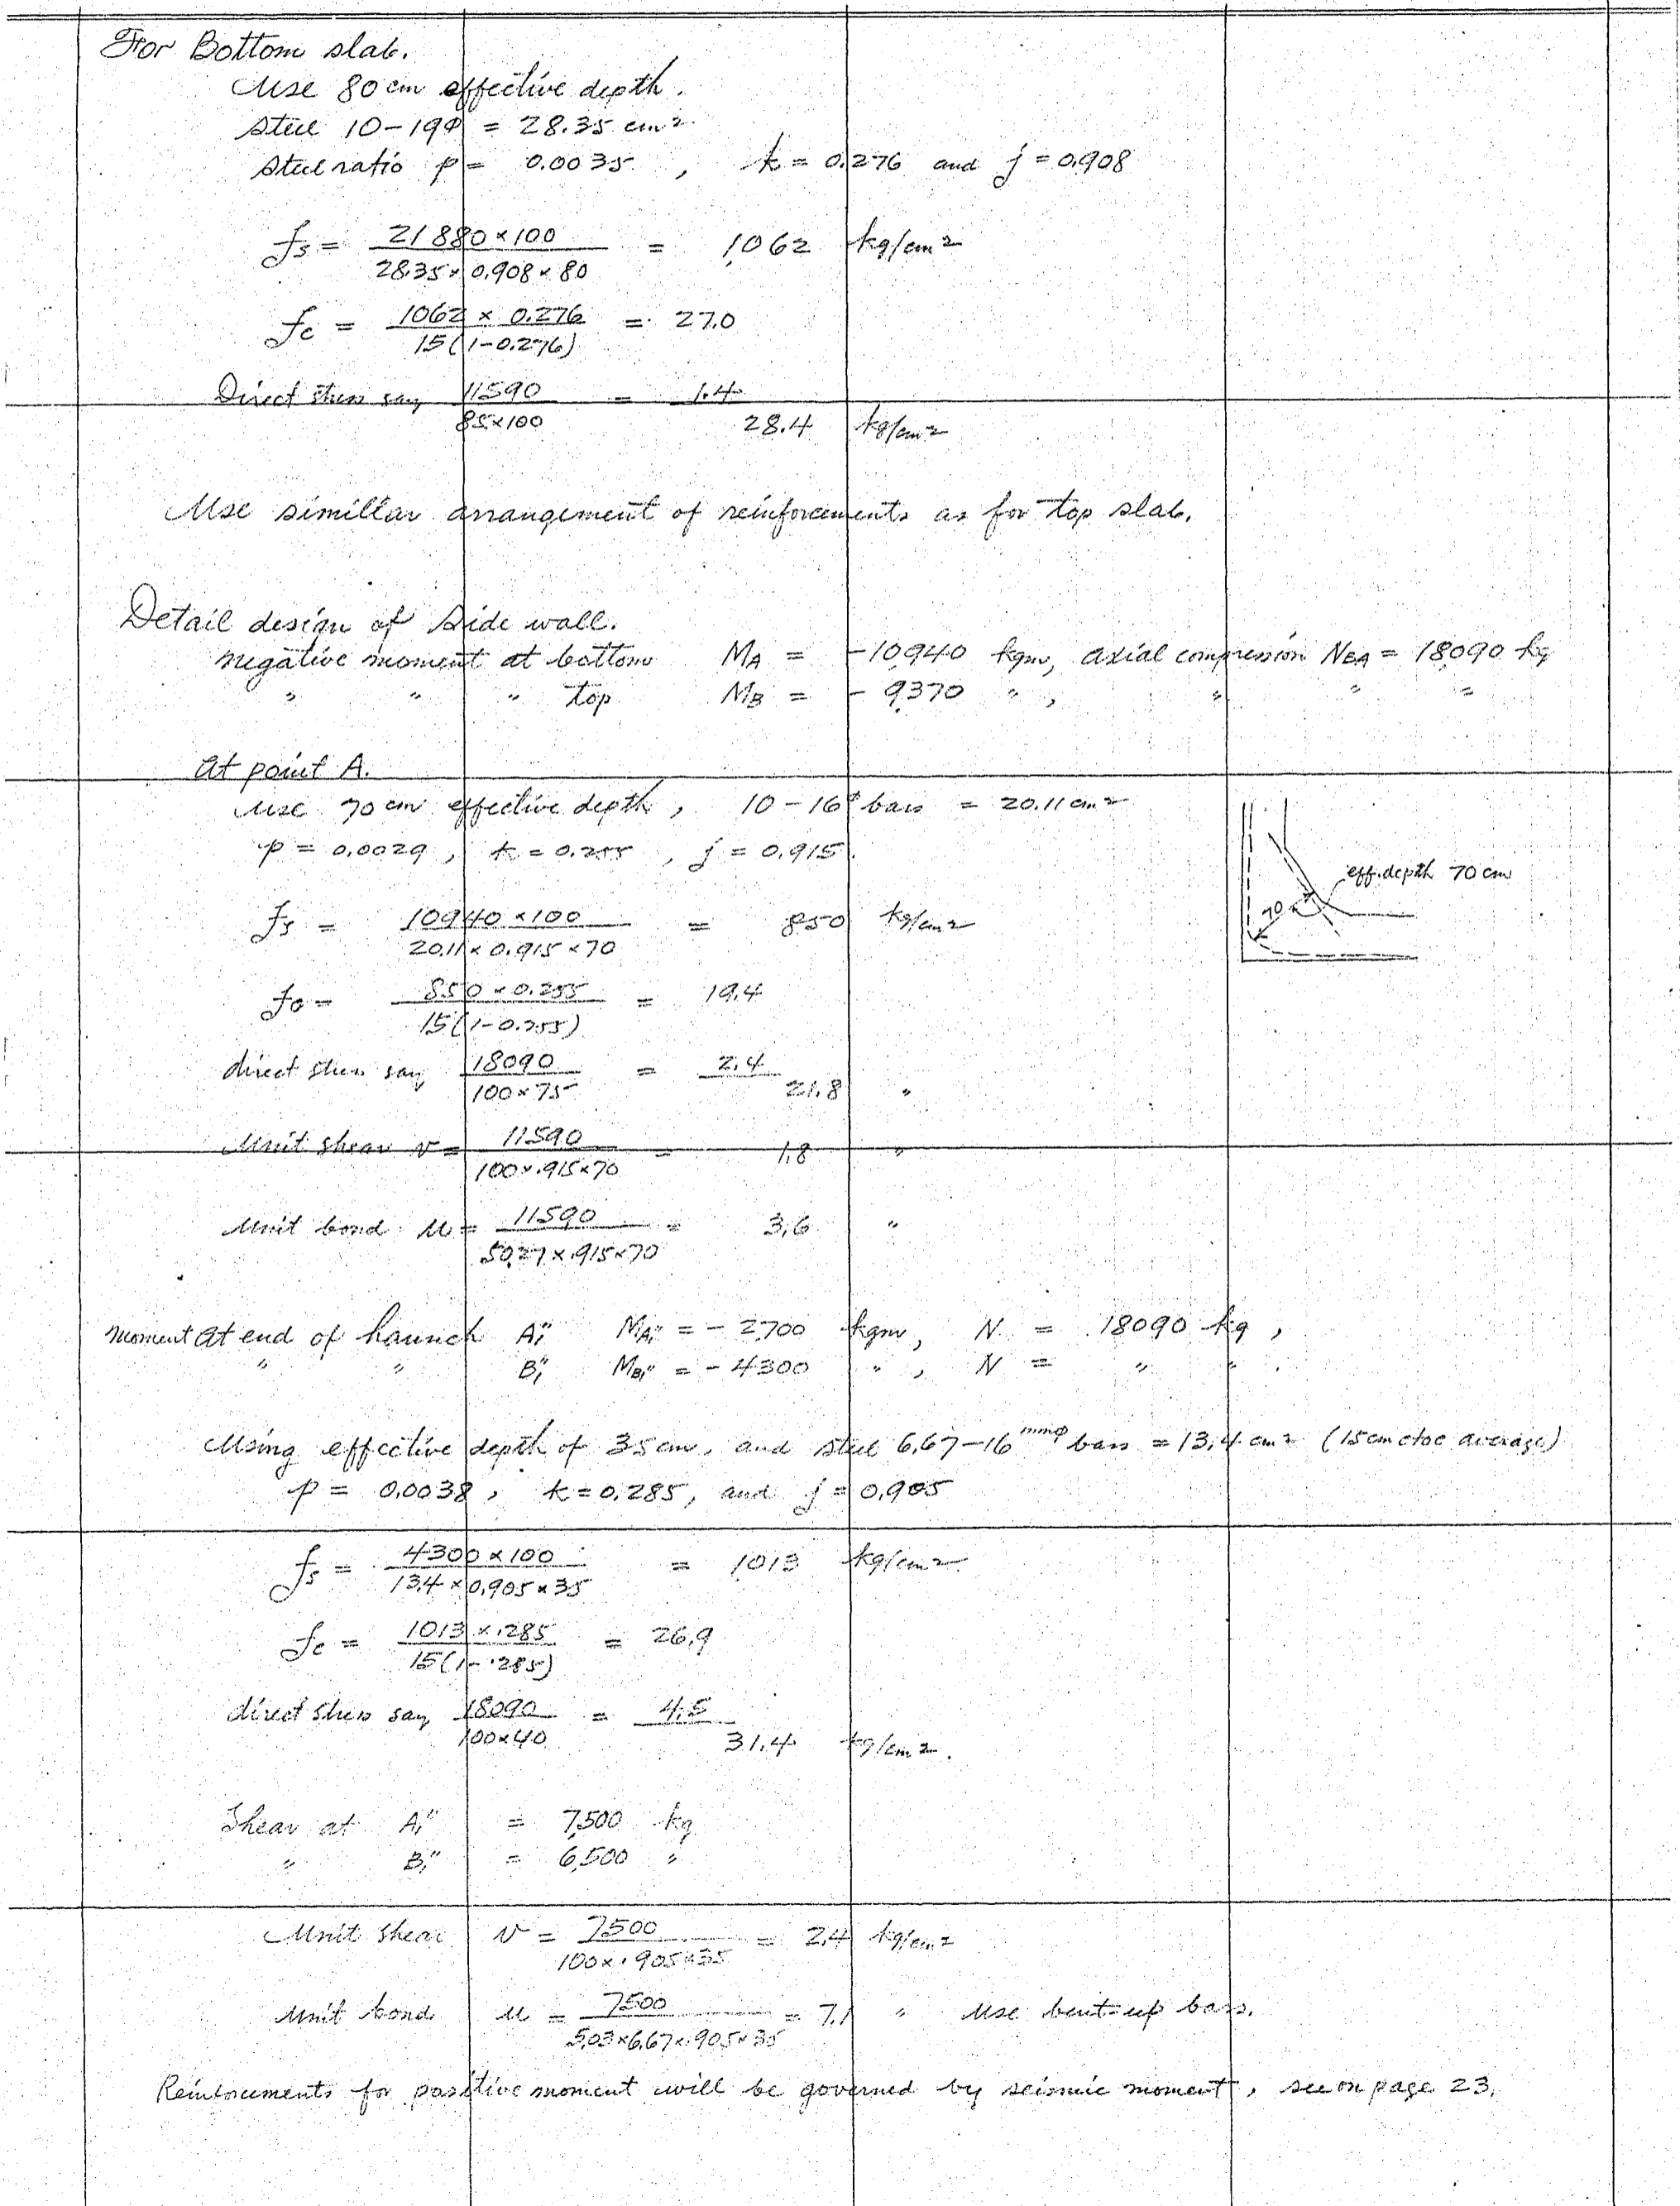 For Bottom slab.
Use 80 cm effective depth.
Steel 10-19φ = 28.35 cm²
Steel ratio p = 0.0035 , k = 0.276 and j = 0.908
fs = 21880×100 / 28.35×0.908×80 = 1,062 kg/cm²
fc = 1062 × 0.276 / 15(1-0.276) = 27.0
Direct stress say 11590 / 85×100 = 1.4
28.4 kg/cm²
Use simillar arrangement of reinforcements as for top slab.
Detail design of side wall.
Negative moment at bottom MA = -10,940 kgm, axial compression NBA = 18,090 kg
" " " top MB = - 9,370 " , " " "
At point A.
Use 70 cm effective depth , 10-16φ bars = 20.11 cm²
p = 0.0029 , k = 0.255 , j = 0.915
eff. depth 70 cm
70
fs = 10940×100 / 20.11×0.915×70 = 850 kg/cm²
fc = 850×0.255 / 15(1-0.255) = 19.4
direct stress say 18090 / 100×75 = 2.4
21.8 "
Unit shear v = 11590 / 100×.915×70 = 1.8 "
Unit bond u = 11590 / 50.27×.915×70 = 3.6 "
Moment at end of haunch A1" MA1" = - 2,700 kgm, N = 18090 kg ,
" " B1" MB1" = - 4300 " , N = " " .
Using effective depth of 35 cm, and steel 6.67-16mmφ bars = 13.4 cm² (15 cm ctoc average)
p = 0.0038 , k = 0.285, and j = 0.905
fs = 4300×100 / 13.4×0.905×35 = 1,013 kg/cm²
fc = 1013×.285 / 15(1-.285) = 26.9
direct stress say 18090 / 100×40 = 4.5
31.4 kg/cm².
Shear at A1" = 7,500 kg
" B1" = 6,500 "
Unit shear v = 7500 / 100×.905×35 = 2.4 kg/cm²
Unit bond u = 7500 / 5.03×6.67×.905×35 = 7.1 " Use bent-up bars.
Reinforcements for positive moment will be governed by seismic moment, see on page 23.